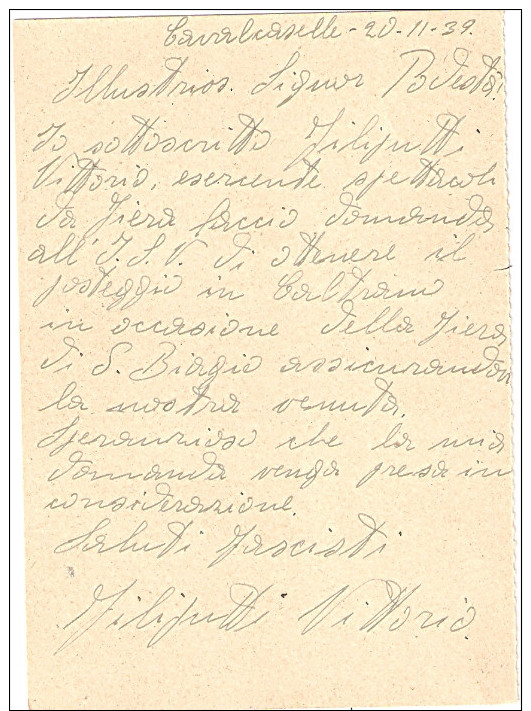 Cavalcaselle - 20-11-39.
Illustrios. Signor Podestà
Io sottoscritto Filiputti
Vittorio, esercente spettacoli
da Fiera faccio domanda
all' I.S.V. di ottenere il
posteggio in Caltrano
in occasione della Fiera
di S. Biagio assicurandovi
la nostra venuta.
Speranzioso che la mia
domanda venga presa in
considerazione.
Saluti fascisti
Filiputti Vittorio